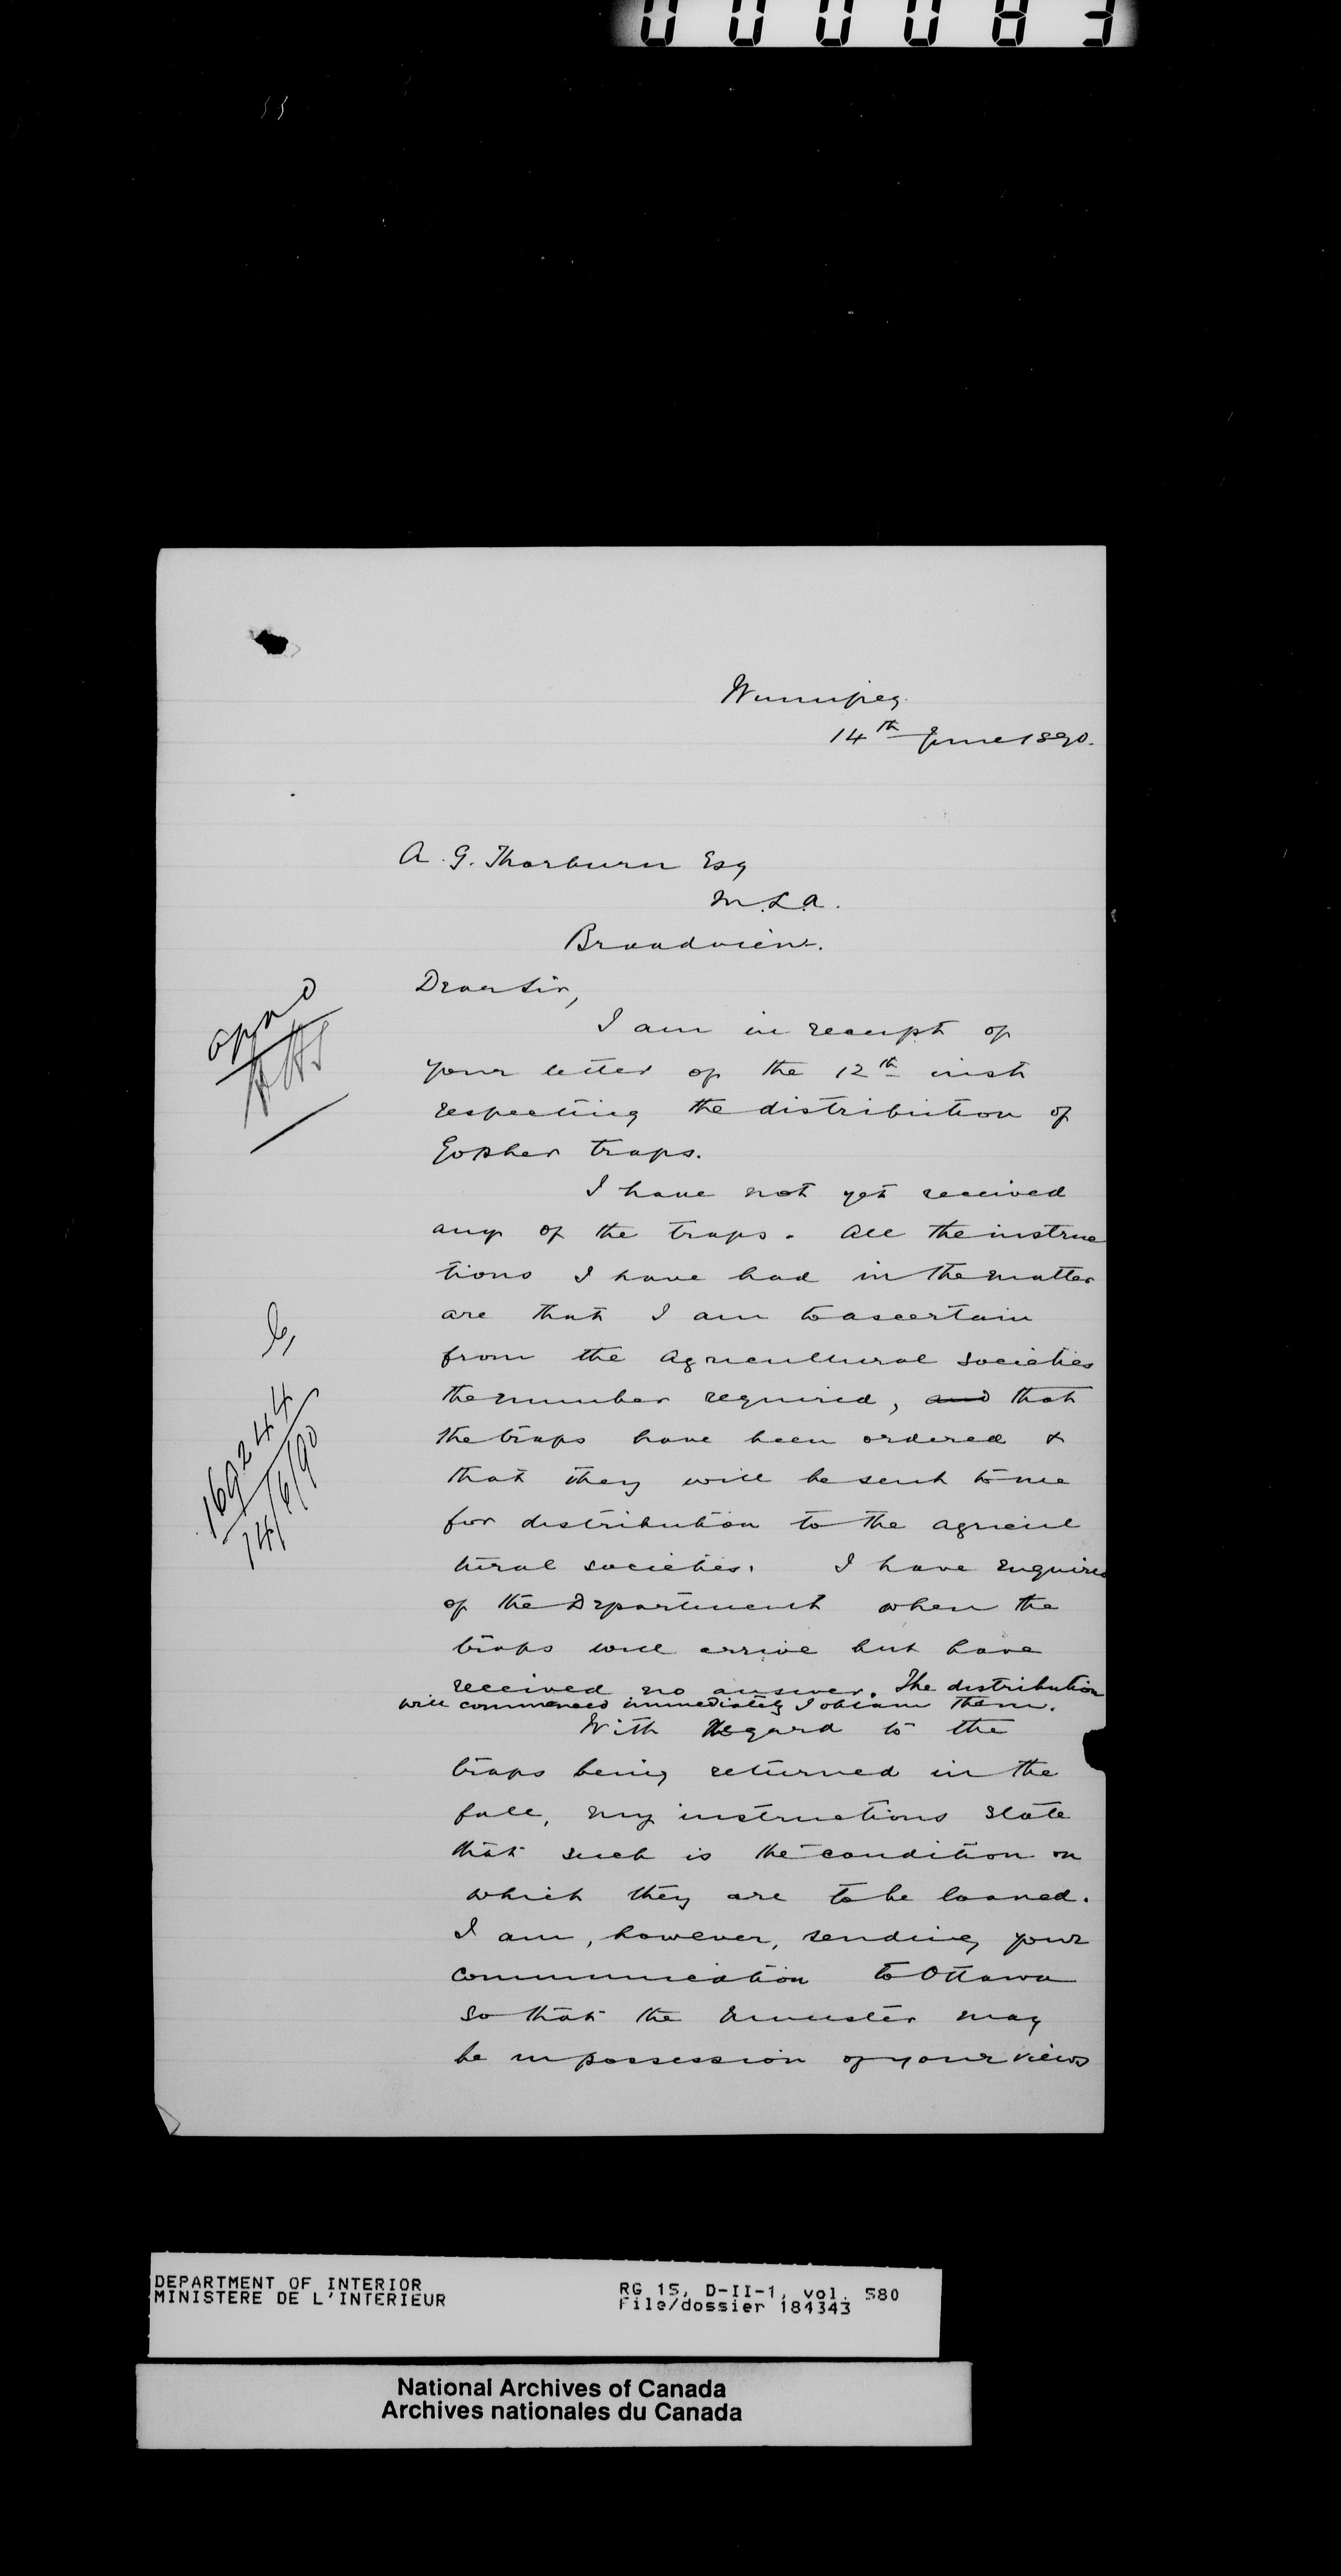 000083
Winnipeg.
14th June 1890.
A. G. Thorburn Esq
M.L.A.
Broadview.
Dear Sir,
I am in receipt of
your letter of the 12th inst
respecting the distribution of
Gopher traps.
I have not yet received
any of the traps. All the instruc
tions I have had in the matter
are that I am to ascertain
from the Agricultural Societies
the number required, and that
the traps have been ordered &
that they will be sent to me
for distribution to the agricul
tural societies. I have enquired
of the Department when the
traps will arrive but have
received no answer. The distribution
will commenced immediately I obtain them.
With Regard to the
traps being returned in the
fall, my instructions state
that such is the condition on
which they are to be loaned.
I am, however, sending your
communication to Ottawa
so that the Minister may
be in possession of your views
169244
14/6/90
DEPARTMENT OF INTERIOR
MINISTERE DE L'INTERIEUR
RG 15, D-II-1, vol. 580
File/dossier 184343
National Archives of Canada
Archives nationales du Canada